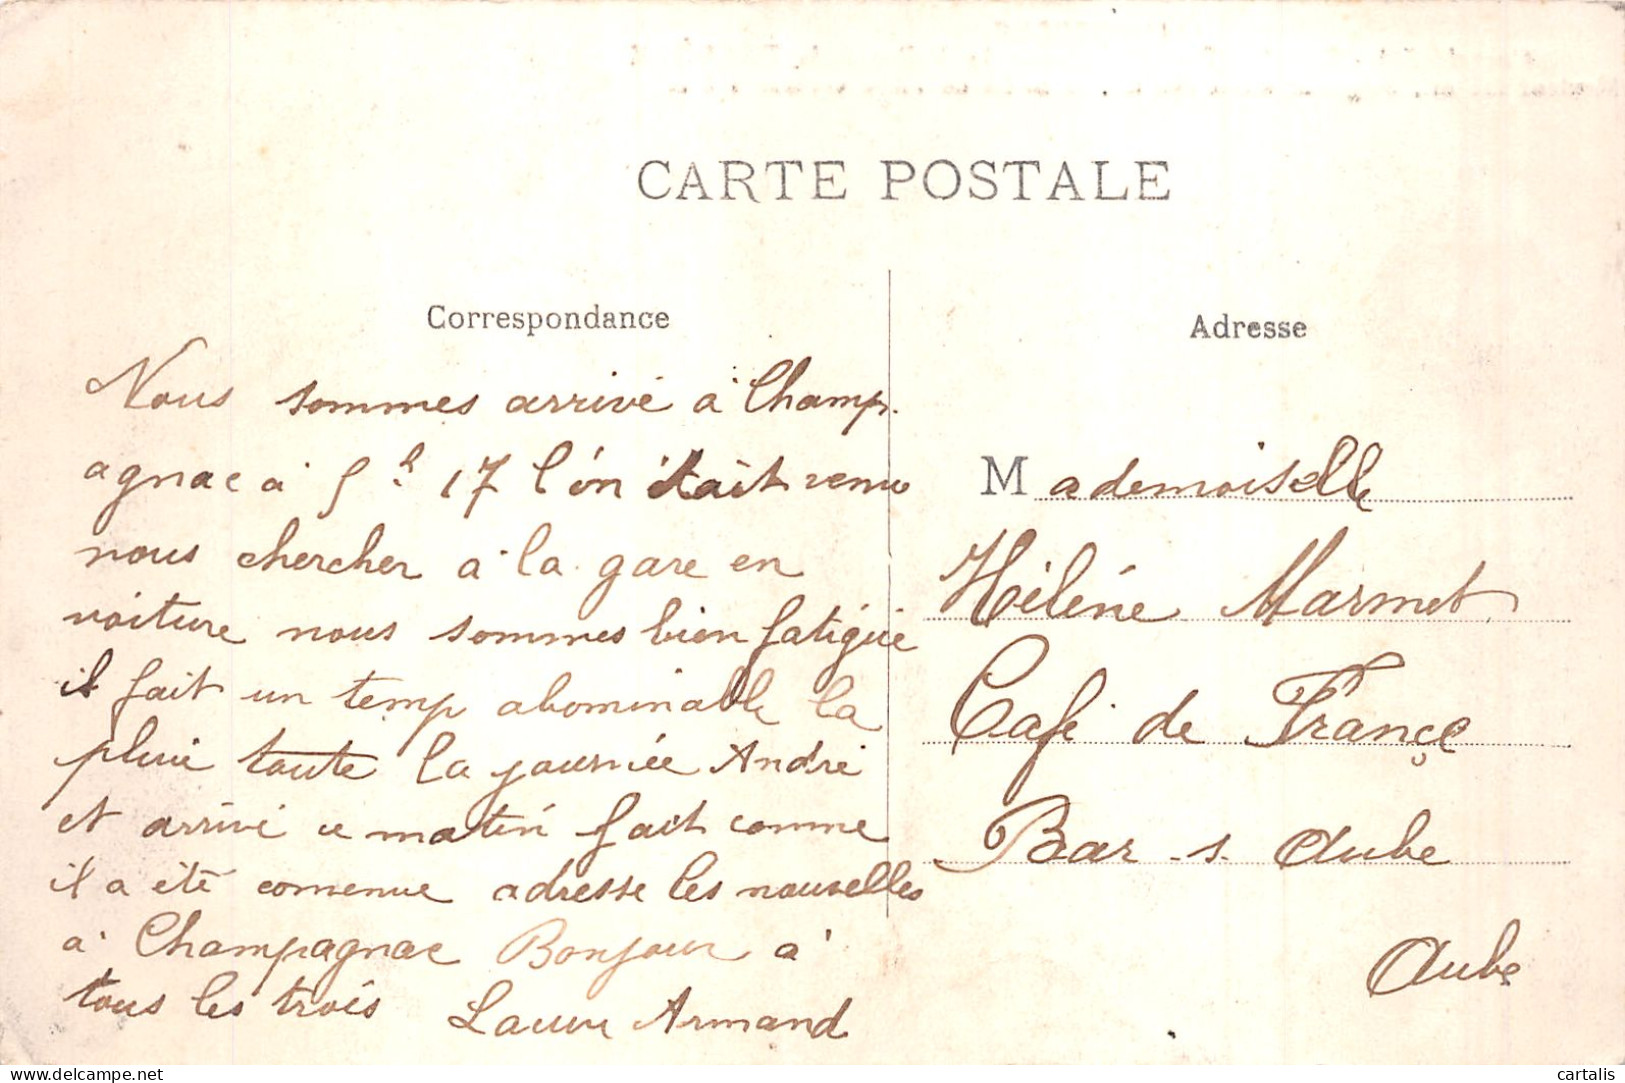 CARTE POSTALE
Correspondance
Nous sommes arrivé à Champ.
agnac à 5 h 17 l'on était venu
nous chercher à la gare en
voiture nous sommes bien fatiguié
il fait un temp abominable la
pluie toute la journée André
et arrivé ce matin fait comme
il a été comenue adresse les nouvelles
à Champagnac Bonjour à
tous les trois Laure Armand
Adresse
Mademoiselle
Hélène Marmet
Café de Françe
Bar-s-Aube
Aube
delcampe.net
cartalis